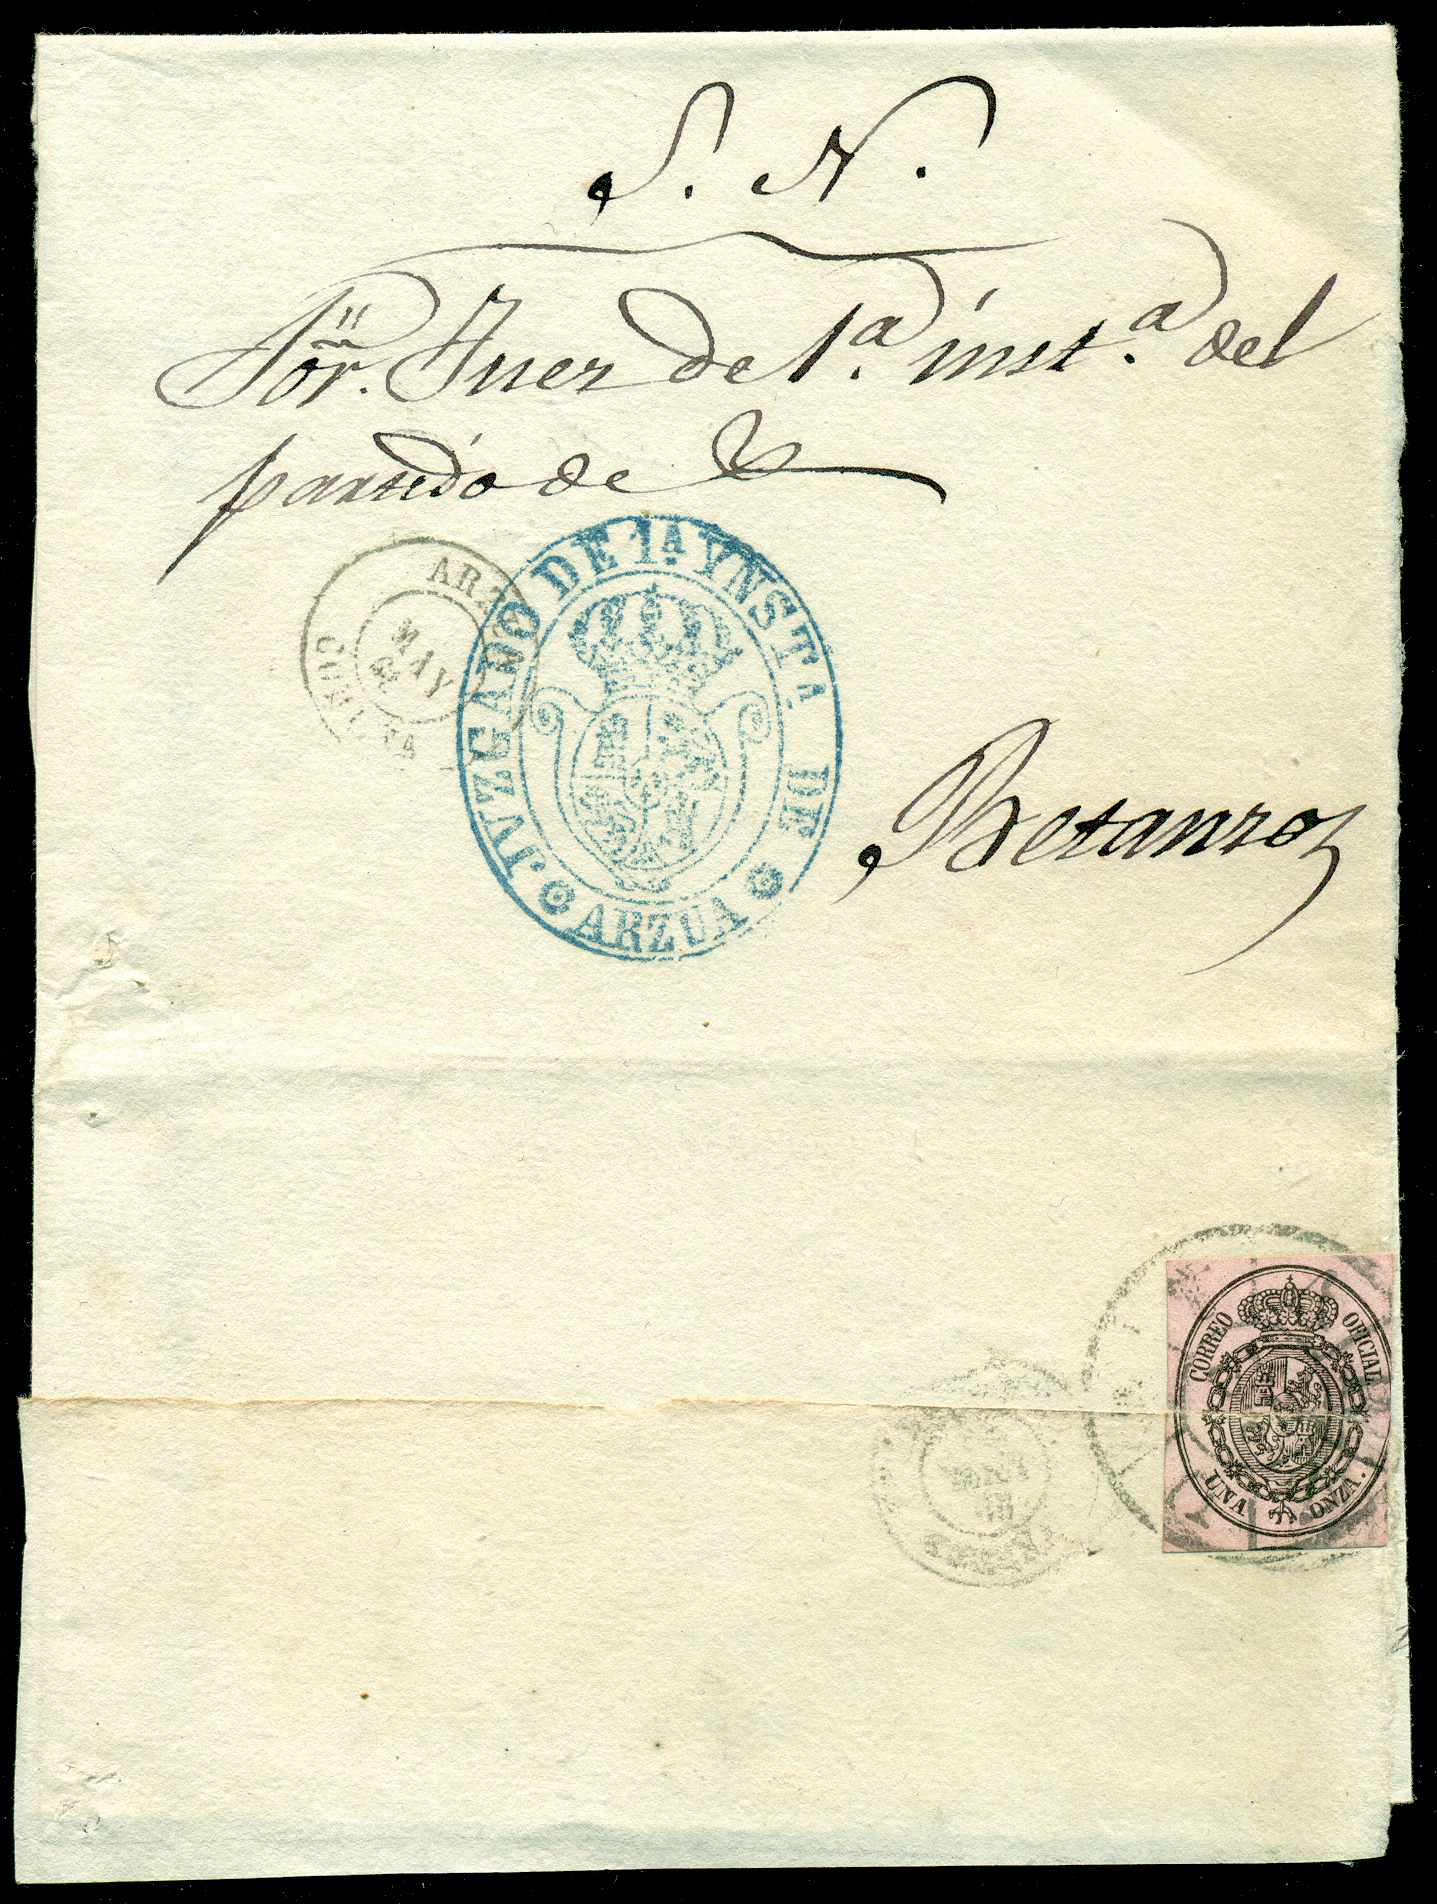 S. N.
Sōr. Juez de 1.ª inst.ª del
partido de
ARZUA
MAY
CORUÑA
JUZGADO DE 1.ª YNST.ª DE
ARZUA
Betanzos
CORREO OFICIAL
UNA ONZA.